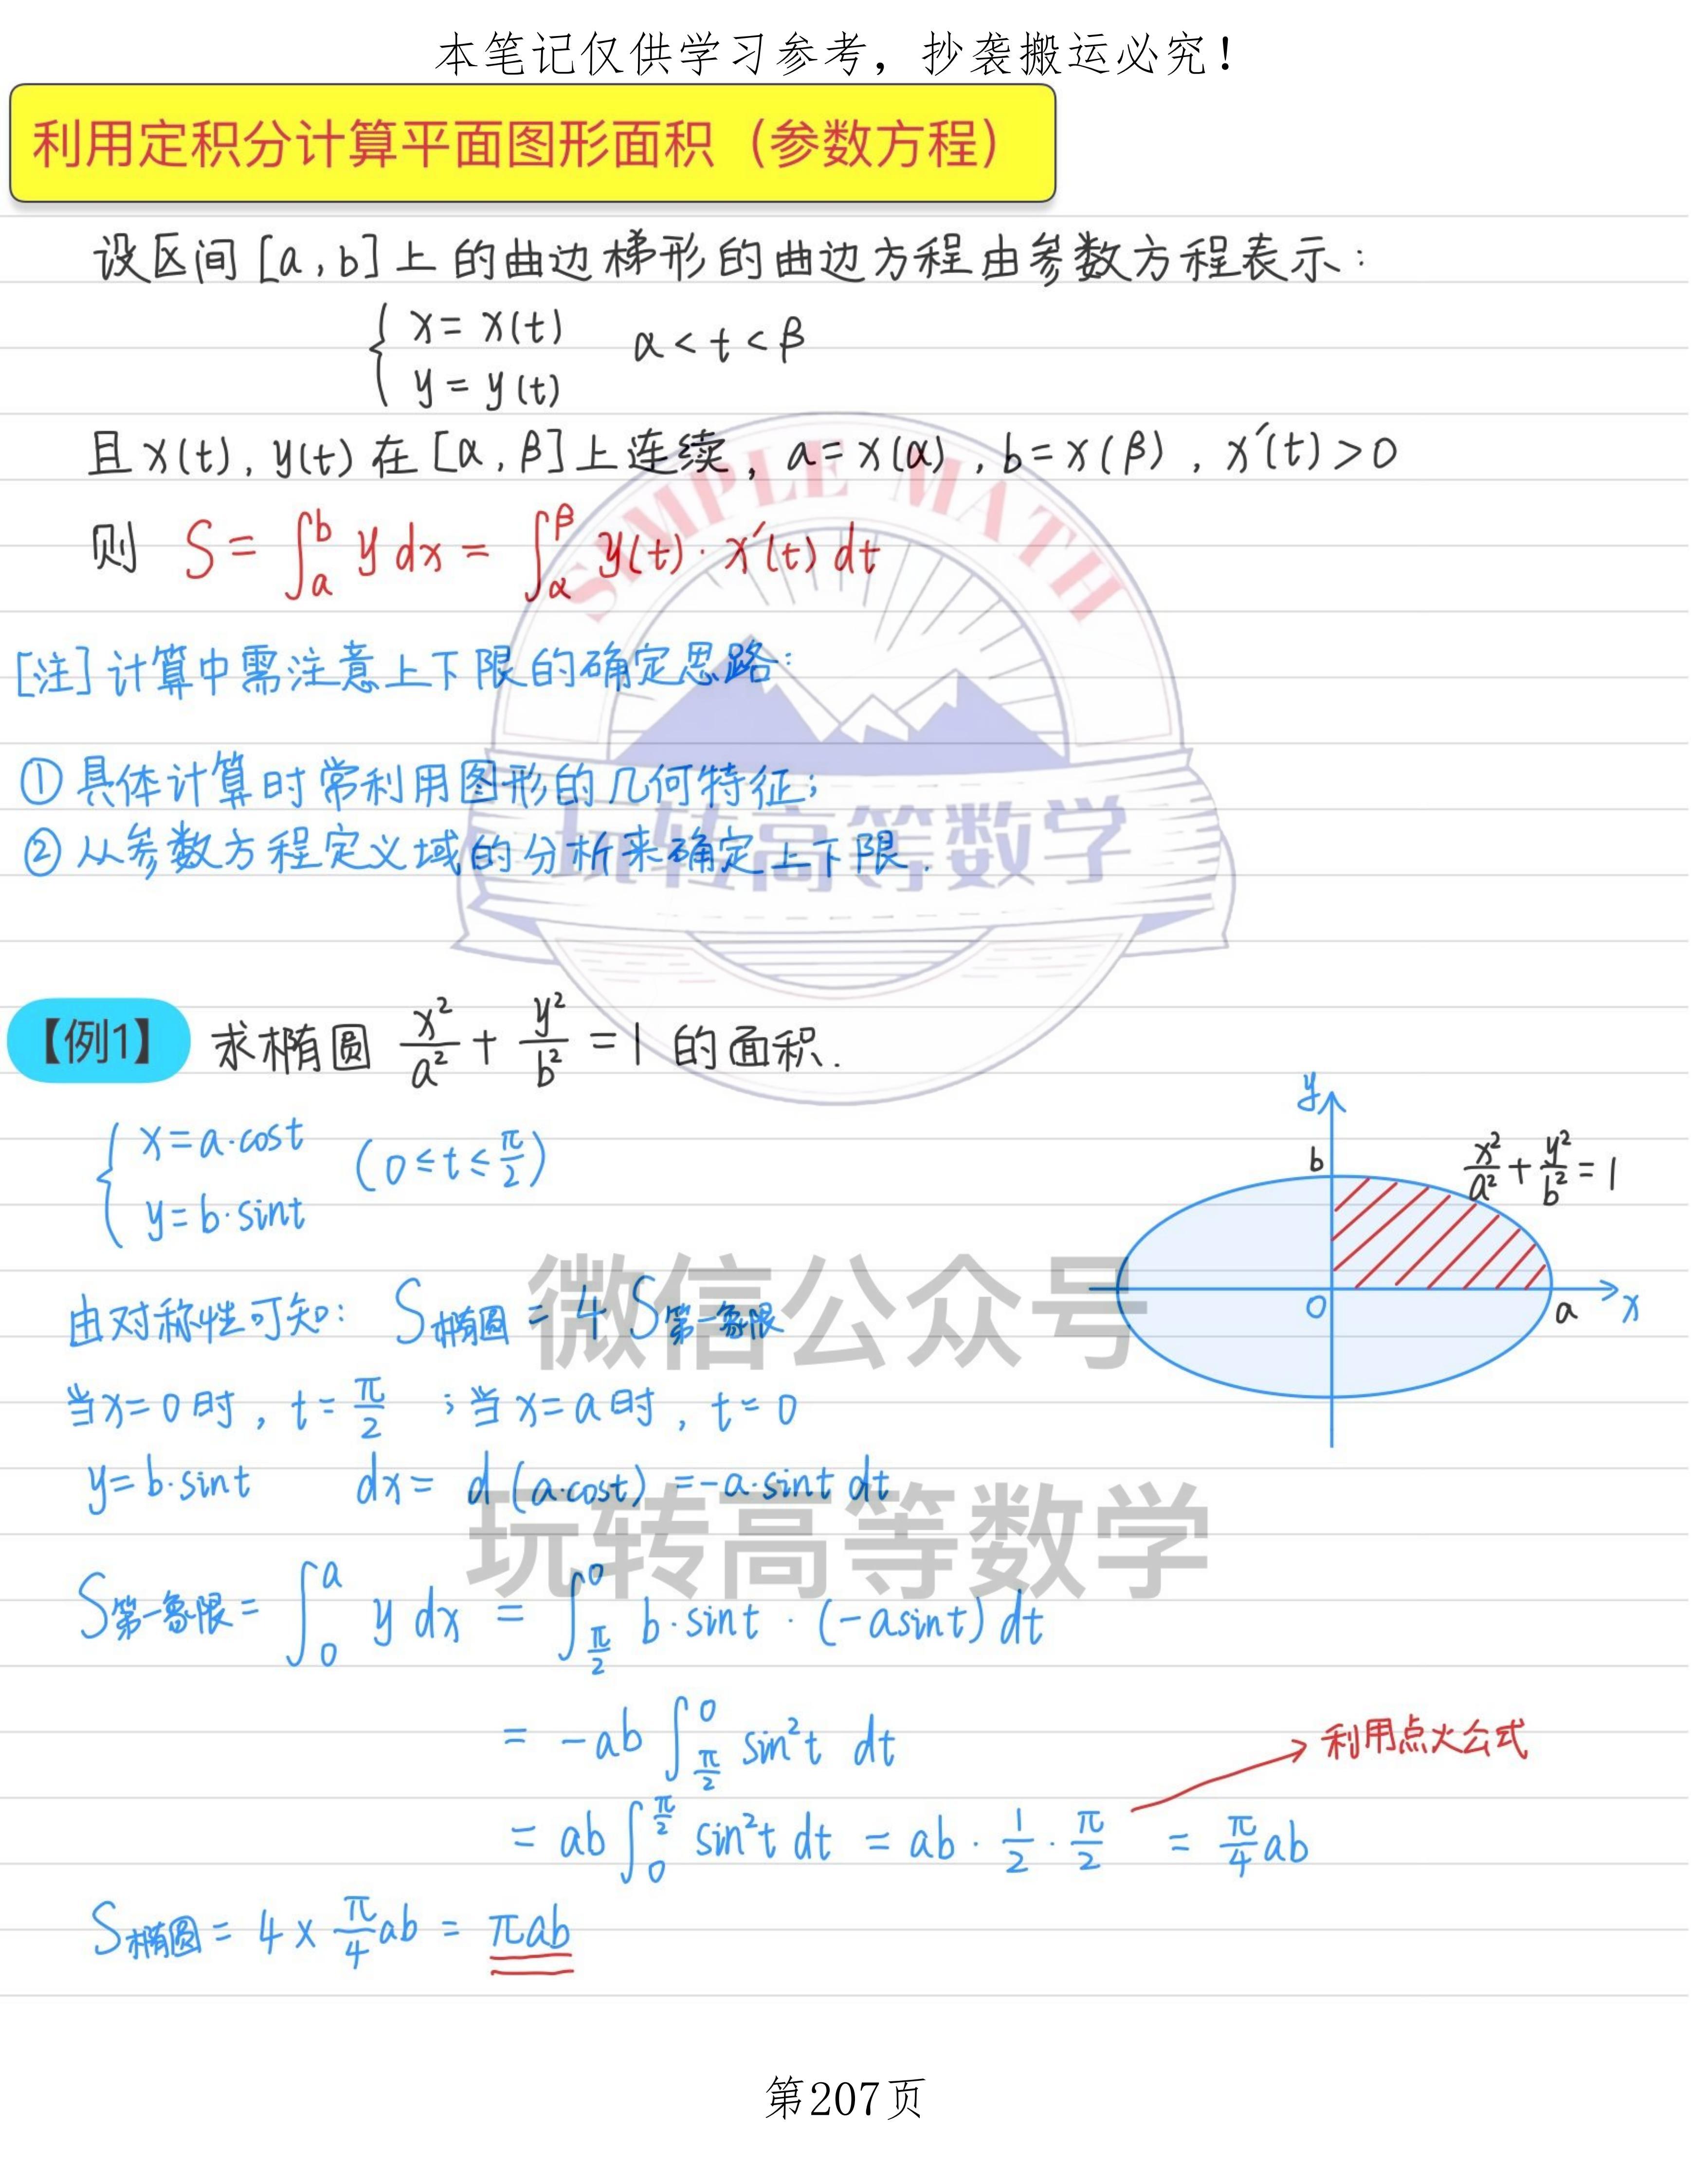 本笔记仅供学习参考，抄袭搬运必究！
利用定积分计算平面图形面积（参数方程）
设区间[a,b]上的曲边梯形的曲边方程由参数方程表示：
{ x=x(t)
y=y(t) α<t<β
且x(t), y(t)在[α,β]上连续, a=x(α), b=x(β), x′(t)>0
则 S=∫_a^b y dx = ∫_α^β y(t)·x′(t) dt
[注]计算中需注意上下限的确定思路：
①具体计算时常利用图形的几何特征；
②从参数方程定义域的分析来确定上下限.
SIMPLE MATH
玩转高等数学
【例1】 求椭圆 x²/a² + y²/b² = 1 的面积.
{ x=a·cost
y=b·sint (0≤t≤π/2)
y
b
x²/a² + y²/b² = 1
0
a
x
由对称性可知： S椭圆 = 4 S第一象限
微信公众号
当x=0时, t=π/2 ；当x=a时, t=0
y=b·sint dx= d(a·cost) =-a·sint dt
玩转高等数学
S第一象限= ∫_0^a y dx = ∫_{π/2}^0 b·sint·(-asint) dt
= -ab ∫_{π/2}^0 sin²t dt
利用点火公式
= ab ∫_0^{π/2} sin²t dt = ab·1/2·π/2 = π/4 ab
S椭圆= 4×π/4 ab = πab
第207页